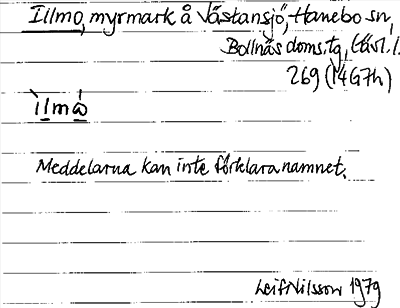 Illmo, myrmark å Västansjö, Hanebo sn,
Bollnäs doms.tg, Gävl. l.
269 (14G7h)
ìlmȧ̀
Meddelarna kan inte förklara namnet.
Leif Nilsson 1979